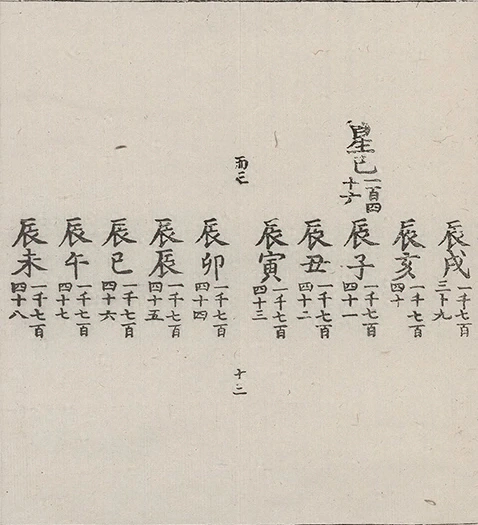 辰戌 一千七百三十九
辰亥 一千七百四十
星己 一百四十六
辰子 一千七百四十一
辰丑 一千七百四十二
辰寅 一千七百四十三
十二
辰卯 一千七百四十四
辰辰 一千七百四十五
辰巳 一千七百四十六
辰午 一千七百四十七
辰未 一千七百四十八